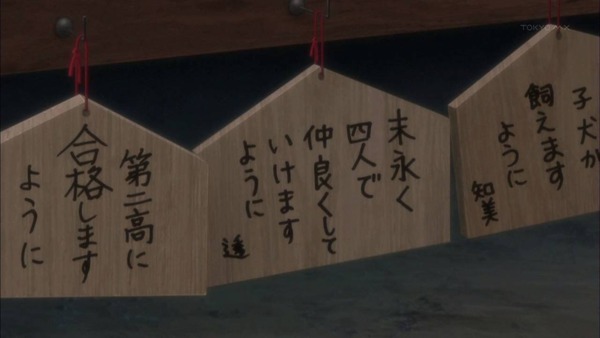 TOKYO MX
子犬が
飼えます
ように
知美
末永く
四人で
仲良くして
いけます
ように
第二高に
合格します
ように